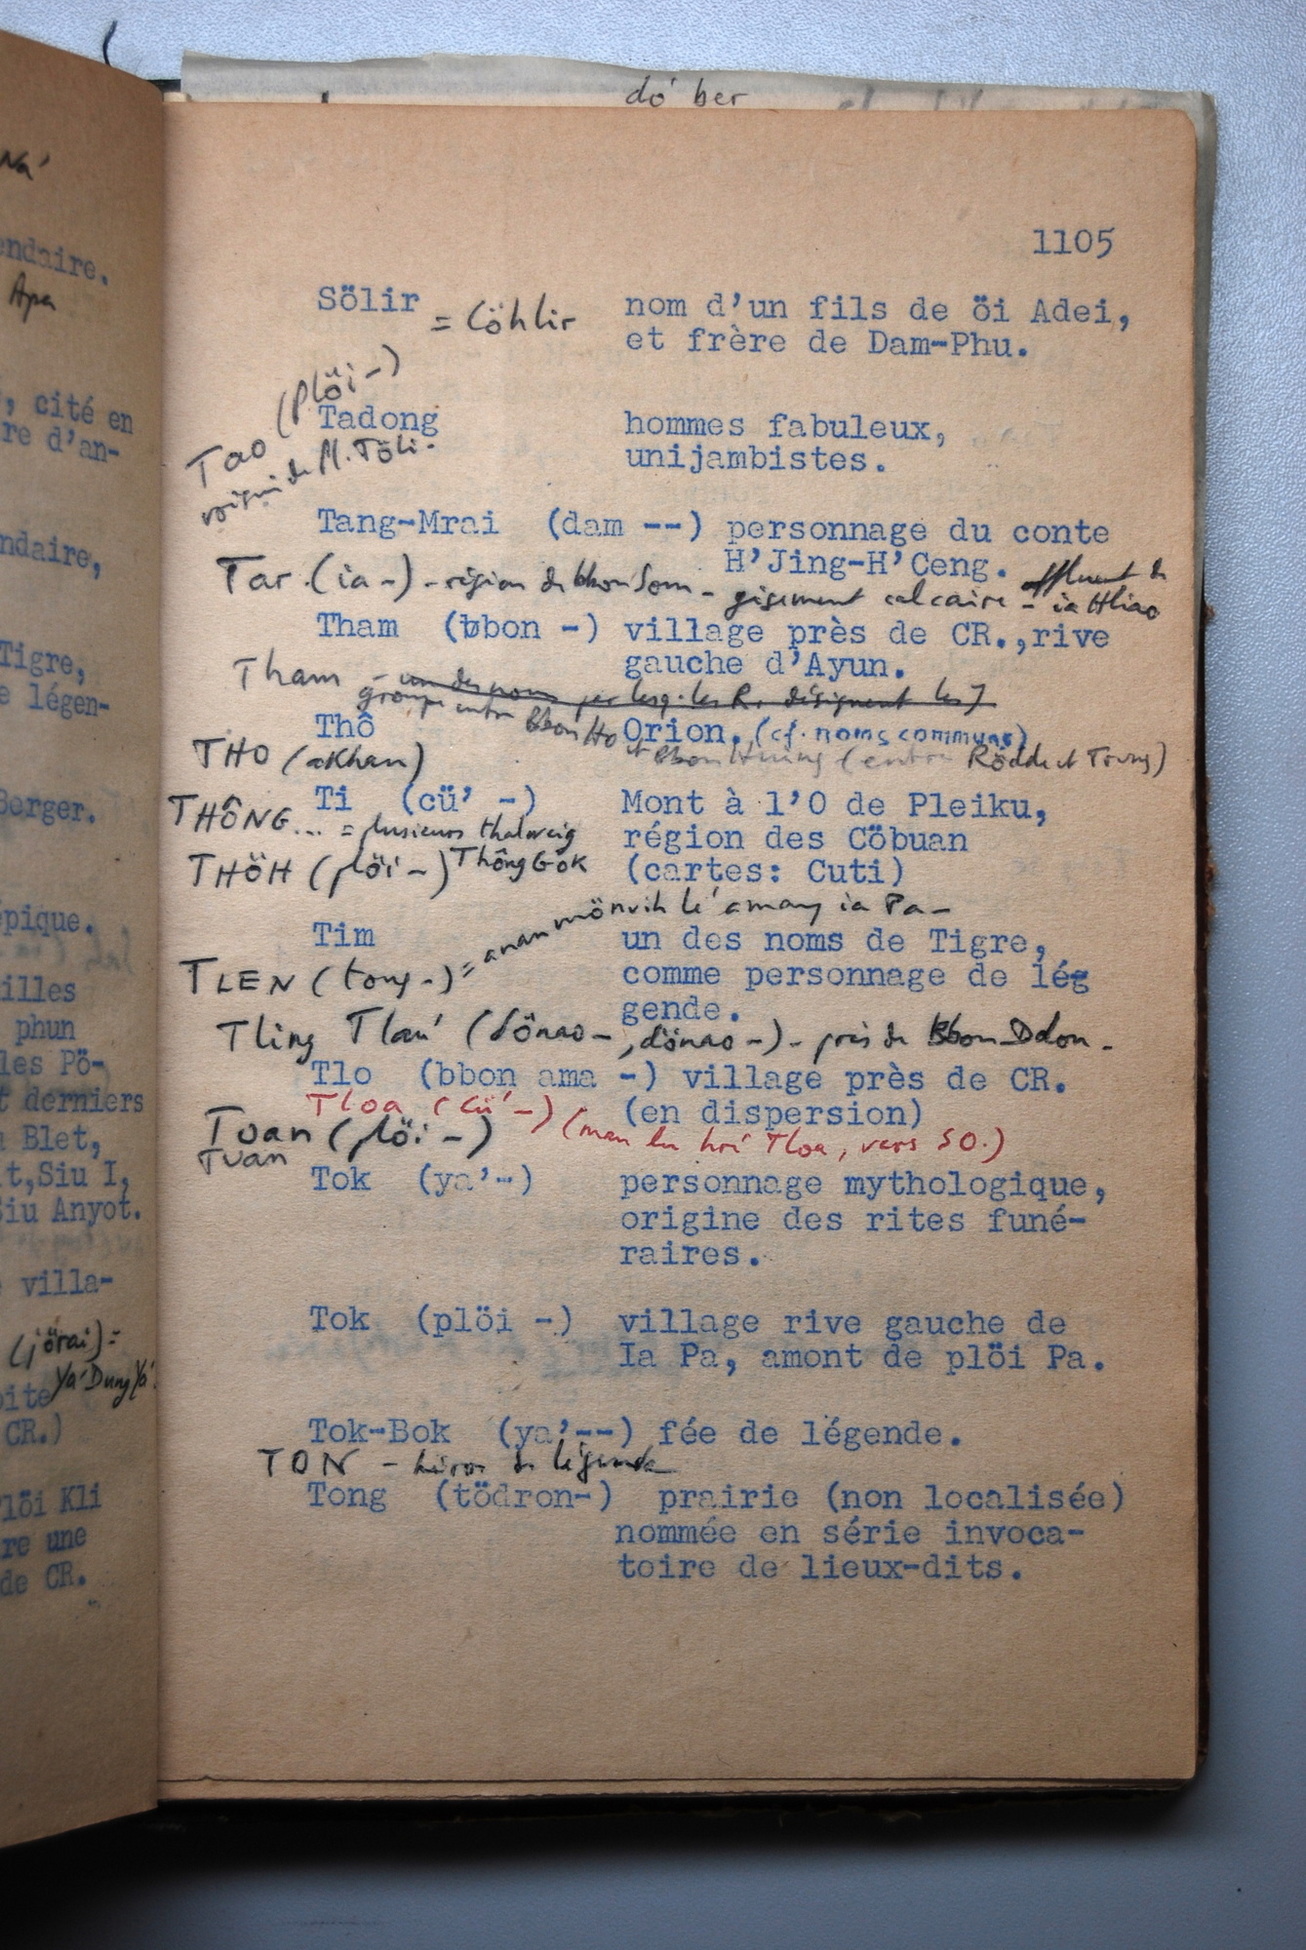 dó ber
1105
Sölir = Cöhlir nom d'un fils de öi Adei,
et frère de Dam-Phu.
Tao (plöi -)
voisin de M. Töli.
Tadong hommes fabuleux,
unijambistes.
Tang-Mrai (dam --) personnage du conte
H'Jing-H'Ceng.
Tar (ia -) - région de bbon Som - gisement calcaire - affluent de
ia Hliao
Tham (bbon -) village près de CR.,rive
gauche d'Ayun.
Tham - un des noms par lesq. les R. désignent les J
groupe entre Bbon Ho et Bbon Hning (entre Rödde et Trung)
Thô Orion. (cf. noms communs)
THO (akhan)
Ti (cü' -) Mont à l'O de Pleiku,
région des Cöbuan
(cartes: Cuti)
THÔNG... = plusieurs thalweig
Thông Gôk
THÖH (plöi -)
Tim un des noms de Tigre,
comme personnage de lég
gende.
TLEN (tong -) = anan mönuih lé amang ia Pa -
Tling Tlaú (dônao -, dönao -) - près de Bbon Ddon -
Tlo (bbon ama -) village près de CR.
(en dispersion)
Tloa (cü' -) (man lu hrí Tloa, vers SO.)
Toan (plöi -)
Tuan
Tok (ya'-) personnage mythologique,
origine des rites funé-
raires.
Tok (plöi -) village rive gauche de
Ia Pa, amont de plöi Pa.
Tok-Bok (ya'--) fée de légende.
TON - héros de légende
Tong (tödron-) prairie (non localisée)
nommée en série invoca-
toire de lieux-dits.
endaire.
Apa
, cité en
re d'an-
ndaire,
Tigre,
e légen-
Berger.
épique.
illes
phun
les Pö-
t derniers
Blet,
t,Siu I,
Siu Anyot.
villa-
(jörai) =
Ya' Dung Ya'
oite
CR.)
löi Kli
re une
de CR.